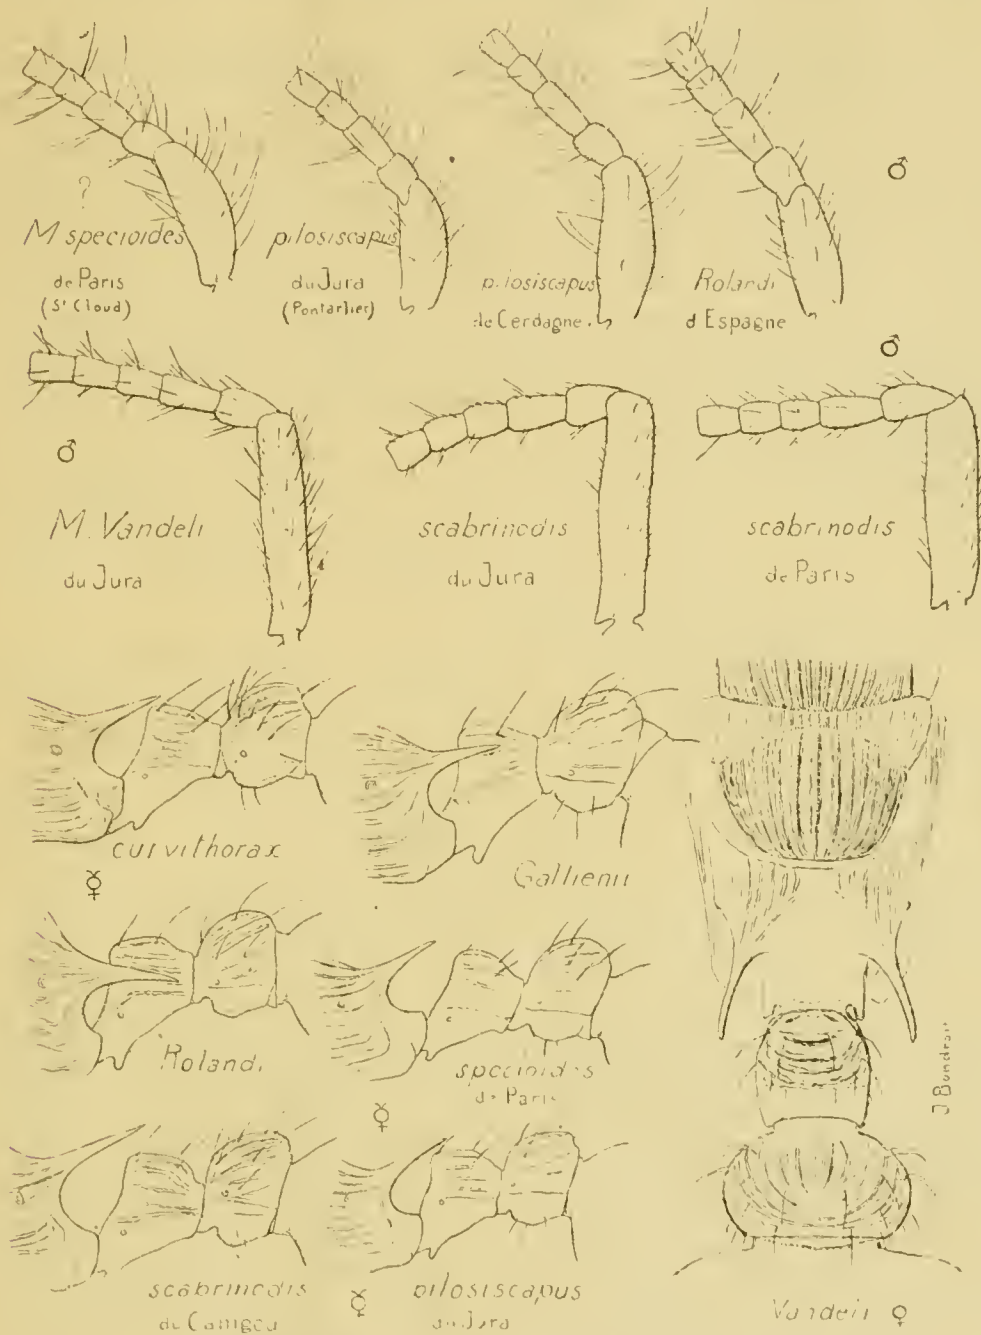 ?
M specioides
de Paris
(St Cloud)
pilosiscapus
du Jura
(Pontarlier)
pilosiscapus
de Cerdagne.
Rolandi
d'Espagne
♂
♂
♂
M. Vandeli
du Jura
scabrinodis
du Jura
scabrinodis
de Paris
curvithorax
Gallienii
☿
Rolandi
specioides
de Paris
☿
scabrinodis
du Canigou
☿
pilosiscapus
du Jura
Vandeli ♀